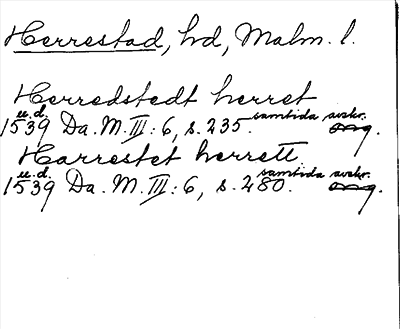 Herrestad, hd, Malm. l.
Herredstedt herret
u.d. samtida avskr.
1539 Da. M. III: 6, s. 235. org.
Harrestet herrett
u.d. samtida avskr.
1539 Da. M. III: 6, s. 280. org.